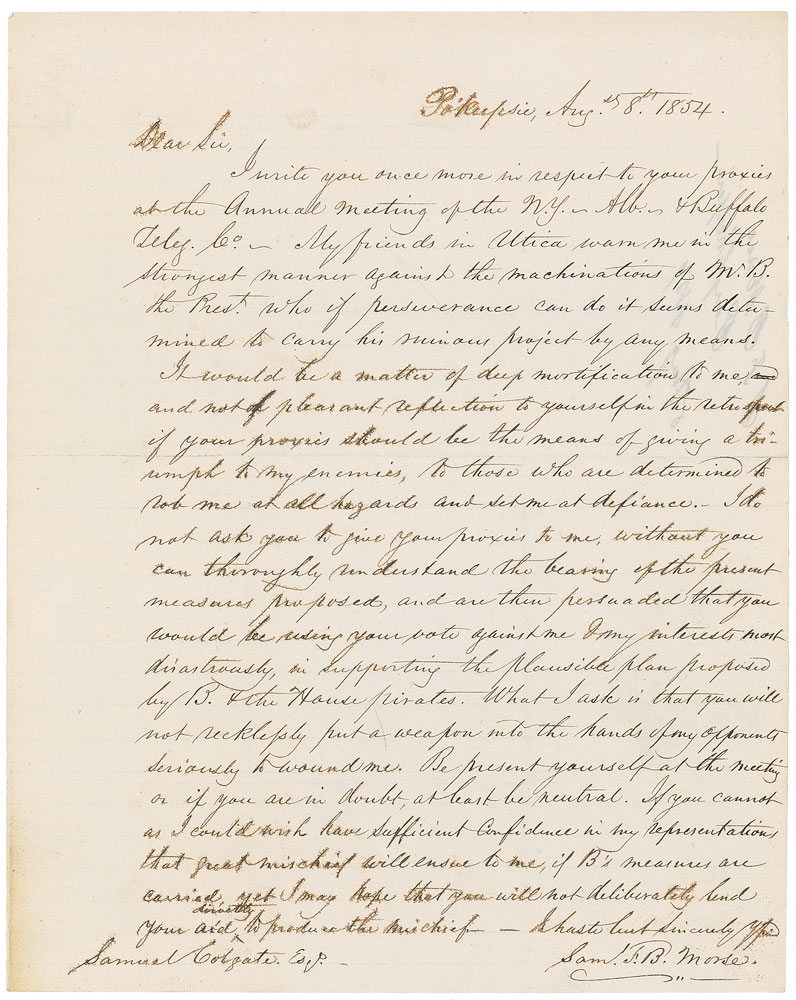 Po'keepsie, Augst 8th 1854.
Dear Sir,
I write you once more in respect to your proxies
at the Annual meeting of the N.Y. – Alb. – & Buffalo
Teleg. Co. – My friends in Utica warn me in the
strongest manner against the machinations of Mr. B.
the Prest. who if perseverance can do it seems deter-
mined to carry his ruinous project by any means.
It would be a matter of deep mortification to me,
and not of pleasant reflection to yourself in the retrospect
if your proxies should be the means of giving a tri-
umph to my enemies, to those who are determined to
rob me at all hazards and set me at defiance. – I do
not ask you to give your proxies to me, without you
can thoroughly understand the bearing of the present
measures proposed, and are then persuaded that you
would be using your vote against me & my interests most
disastrously, in supporting the plausible plan proposed
by B. & the House pirates. What I ask is that you will
not recklessly put a weapon into the hands of my opponents
seriously to wound me. Be present yourself at the meeting
or if you are in doubt, at least be neutral. If you cannot
as I could wish have sufficient confidence in my representations
that great mischief will ensue to me, if B's measures are
carried, yet I may hope that you will not deliberately lend
your aid directly to produce the mischief – – In haste but sincerely Yr frind
Samuel Colgate. Esqr. –
Saml. F. B. Morse.